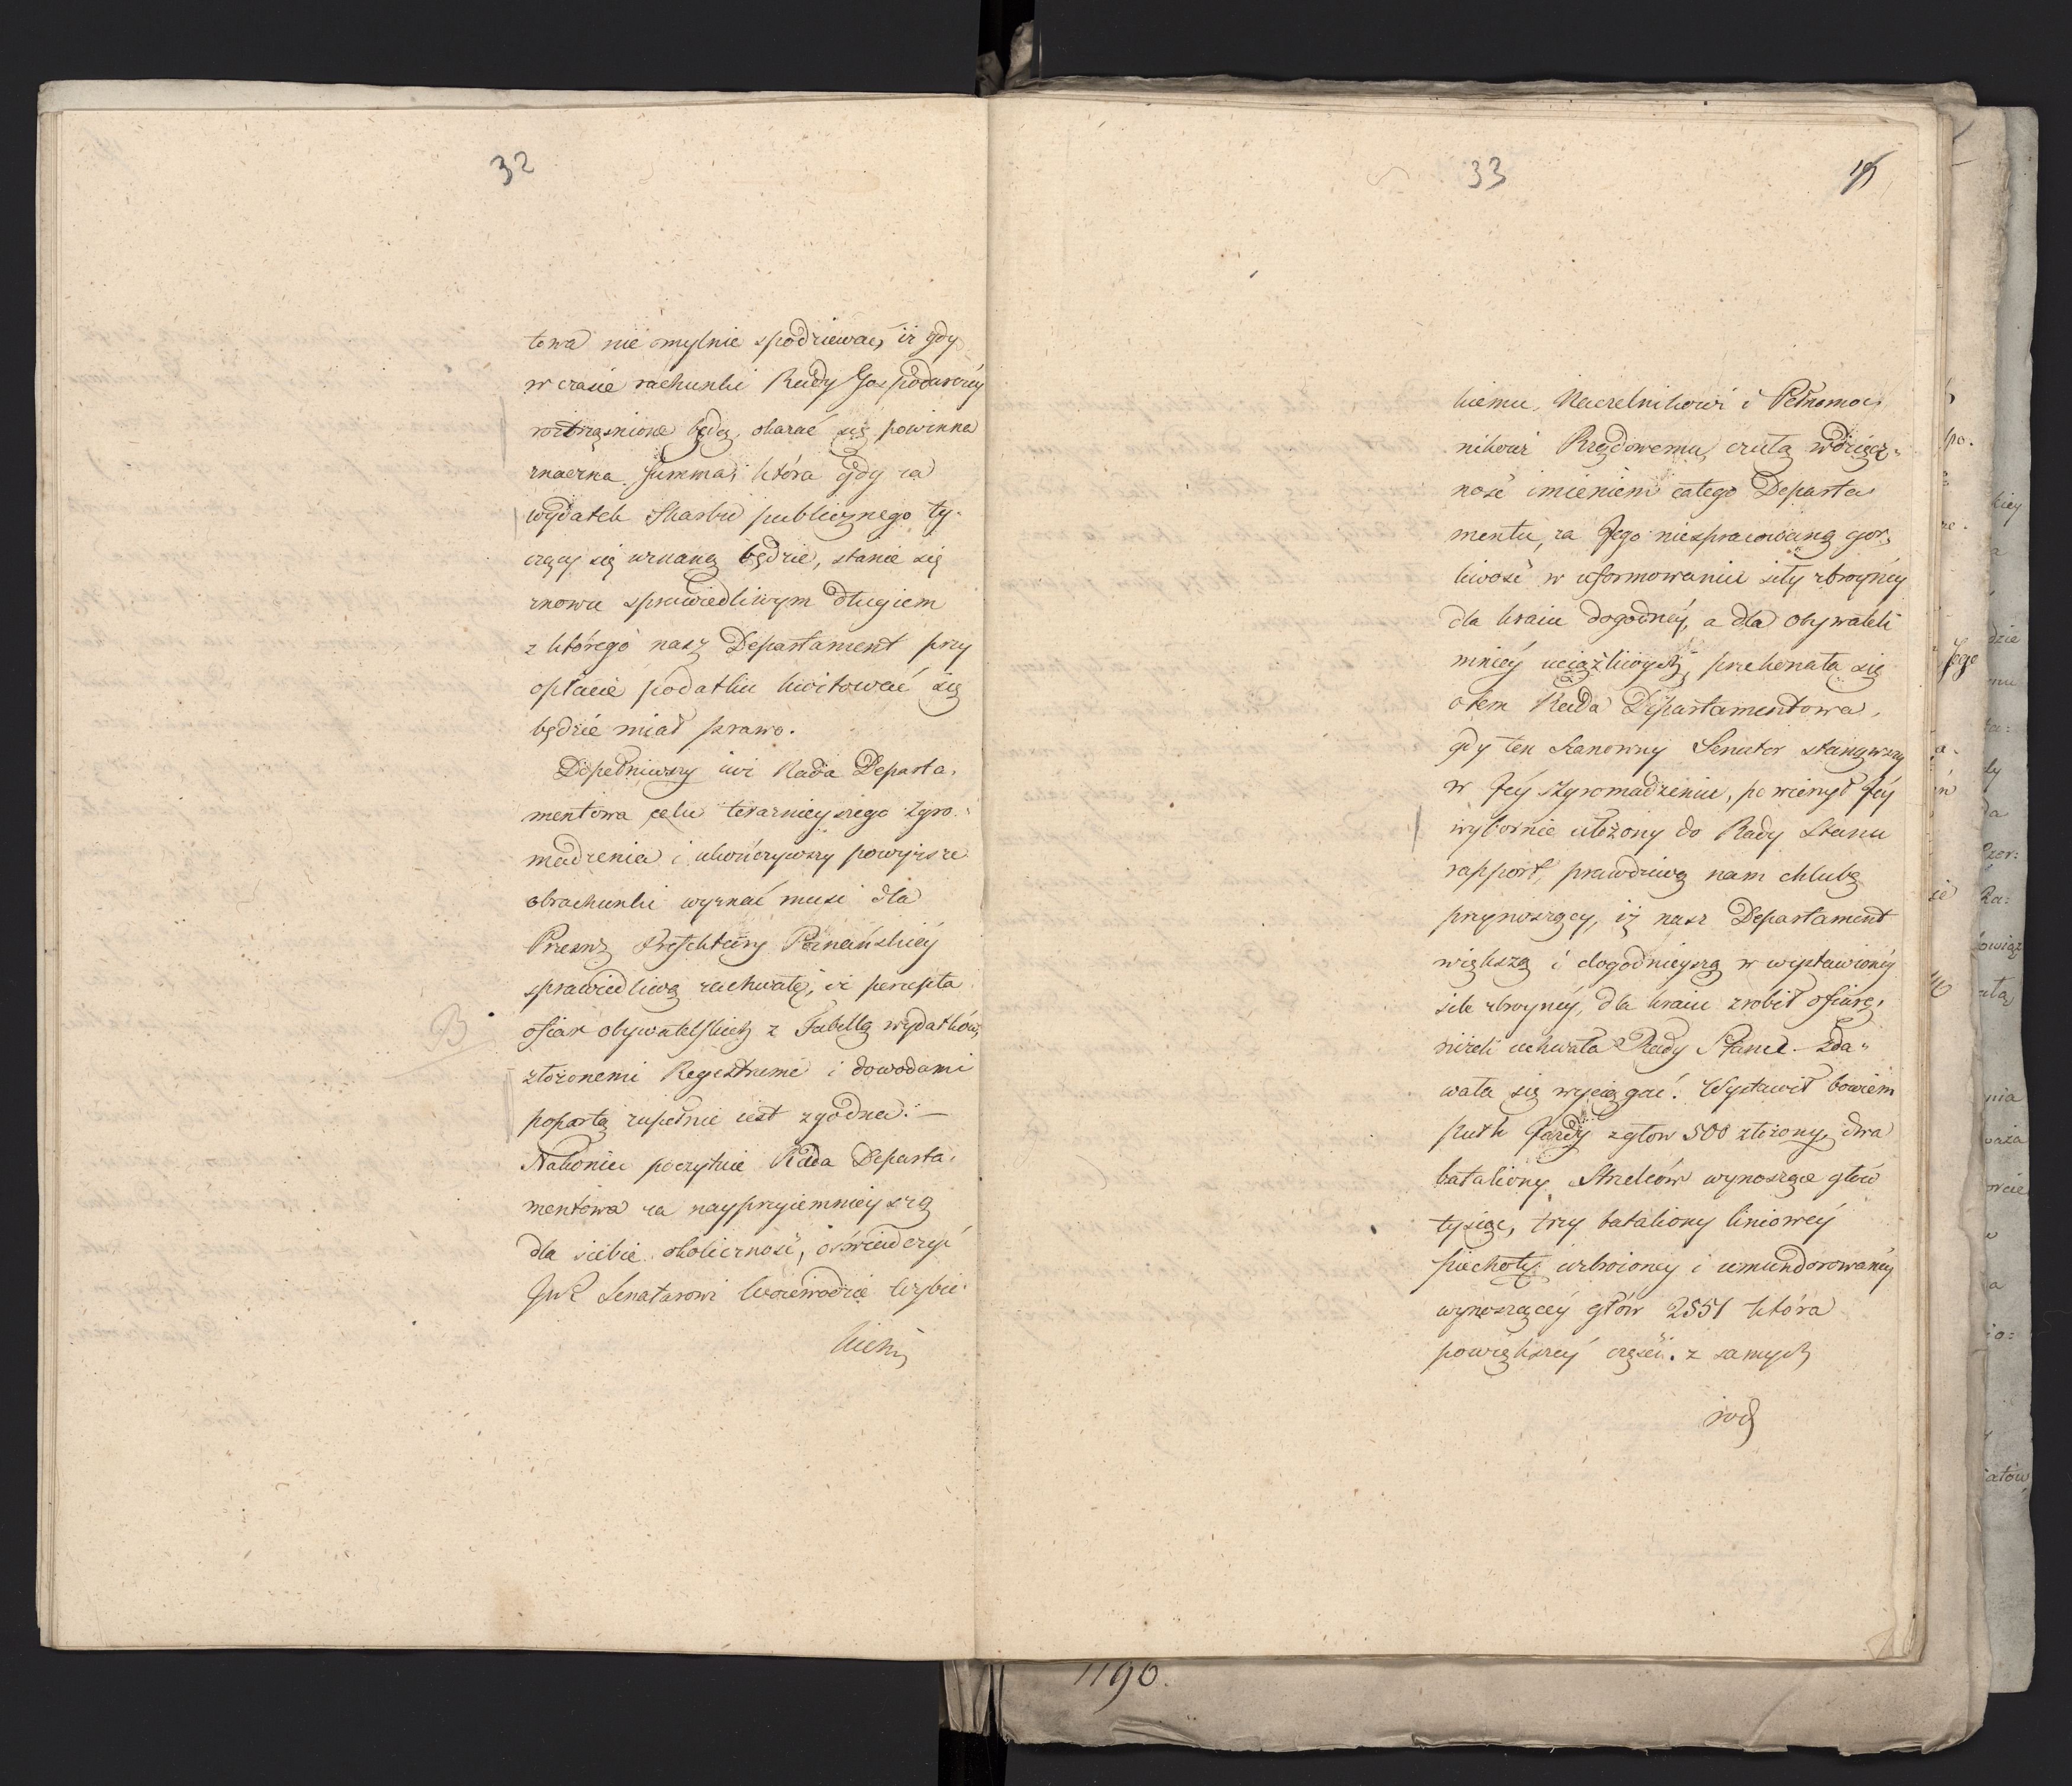 32
towa nie omylnie spodziewać, iż gdy
w czasie rachunki Rady Gospodarczey
roztrząsnione będą, okazać się powinna
znaczna summa, która gdy za
wydatek Skarbu publicznego ty-
czący się uznaną będzie, stanie się
znowu sprawiedliwym długiem
z którego nasz Departament przy
opłacie podatku kwitować się
będzie miał prawo.
Dopełniwszy iuż Rada Departa-
mentowa celu teraznieyszego zgro-
madzenia i ukończywszy powyższe
obrachunki wyznać musi dla
Prefektury Poznańskiéy
sprawiedliwą zachwałę, iż percepta
ofiar obywatelskich z Tabellą wydatków,
B
złożonemi Regestrami i dowodami
popartą zupełnie iest zgodna. —
Nakoniec poczytuie Rada Departa-
mentowa za nayprzyiemnieyszą
dla siebie okoliczność, oświadczyć
JWR Senatorowi Woiewodzie Wybic-
kiemu
33
kiemu, Naczelnikowi i Pełnomoc-
nikowi Rządowemu, czułą wdzięcz-
ność imieniem całego Departa-
mentu, za Jego niespracowaną gor-
liwość w uformowaniu siły zbroynéy
dla kraiu dogodnéy, a dla obywateli
mniéy uciążliwych, przekonała się
o tem Rada Departamentowa,
gdy ten Szanowny Senator stanąwszy
w Jéy zgromadzeniu, powierzył Jéy
wybornie ułożony do Rady Stanu
rapport, prawdziwą nam chlubę
przynoszący, iż nasz Departament
większą i dogodnieyszą w wystawionéy
sile zbroynéy, dla kraiu zrobił ofiarę,
niżeli uchwała Rady Stanu zda-
wała się wyciągać. Wystawił bowiem
Pułk Jazdy z głów 500 złożony, dwa
bataliony Strzelców wynoszące głów
tysiąc, trzy bataliony liniowéy
piechoty uzbroioney i umundorowanéy
wynoszącéy głów 2551 która
powiększéy części z samych
1190.